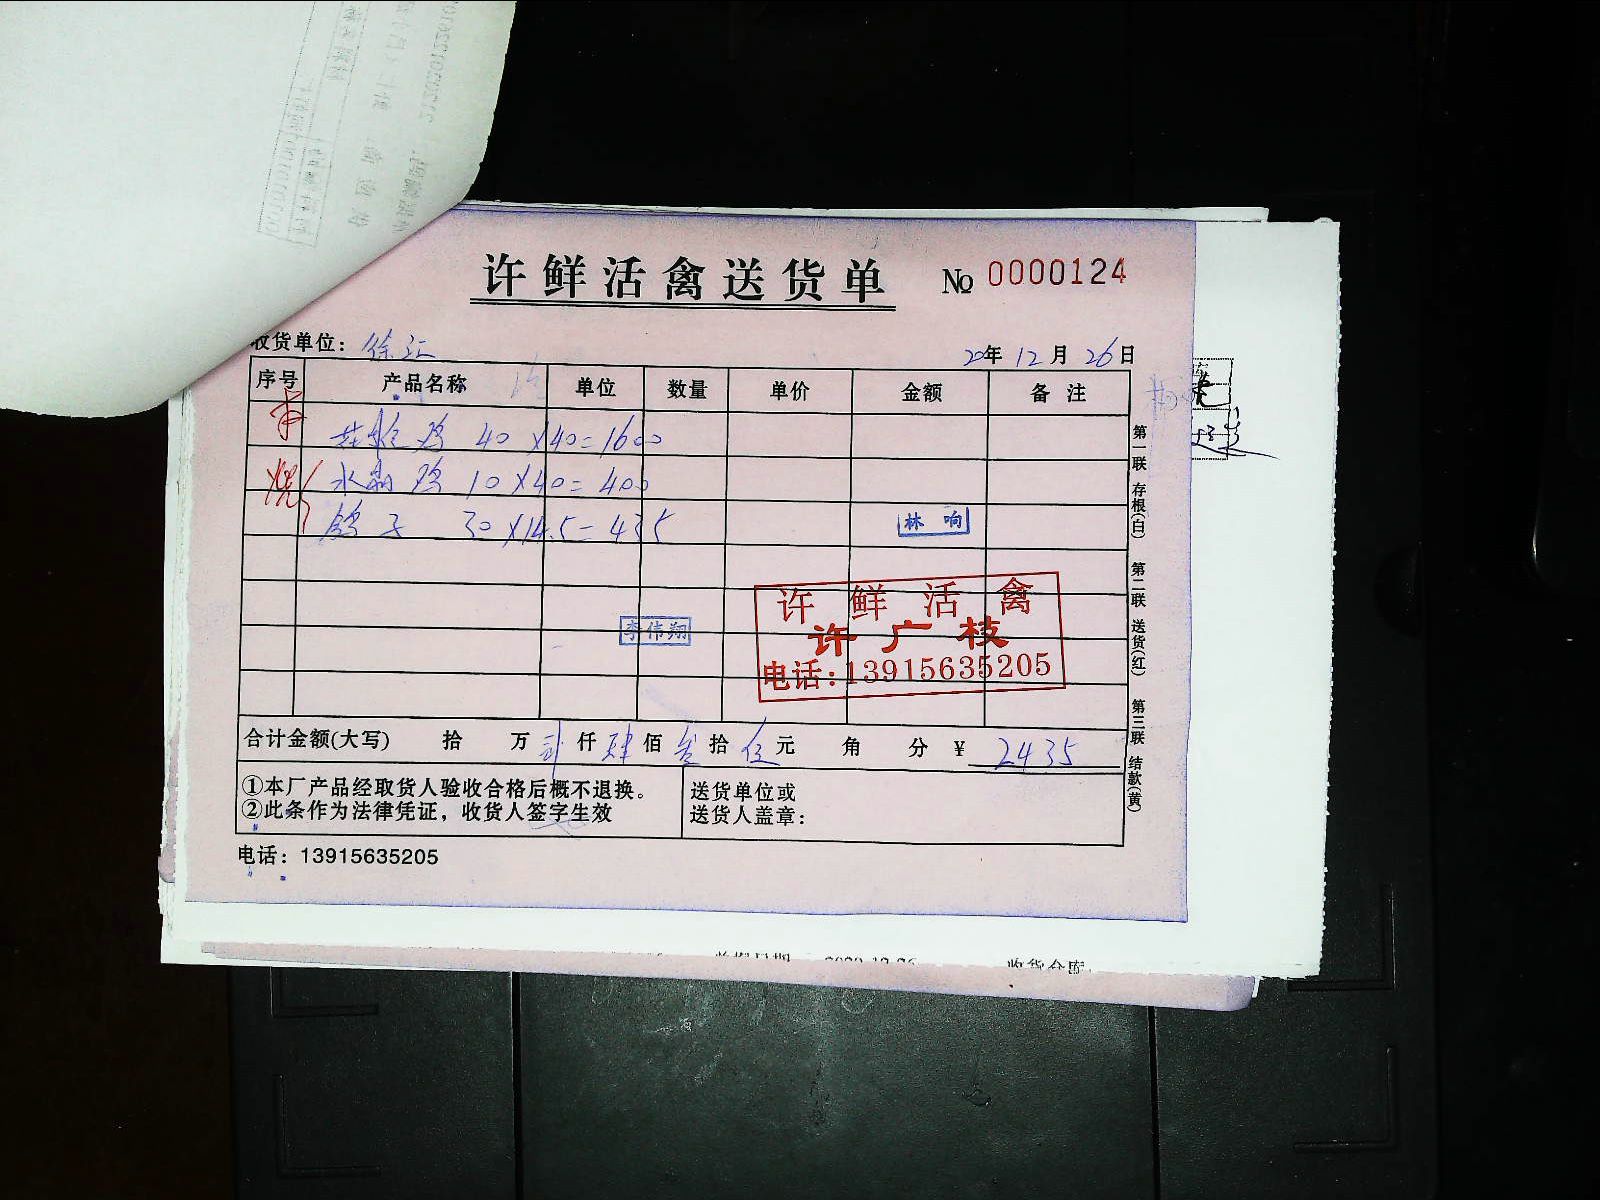 许鲜活禽送货单 № 0000124
收货单位: 徐汇 20年 12月 26日
序号 产品名称 单位 数量 单价 金额 备注
鸡 40 X40=1600
烧 水晶鸡 10 X40=400
鸽子 30 X14.5=435
林响
李伟翔
许鲜活禽
许广枝
电话:13915635205
合计金额(大写) 拾 万 贰仟 肆佰 叁拾 伍元 角 分 ¥ 2435
①本厂产品经取货人验收合格后概不退换。
②此条作为法律凭证，收货人签字生效
送货单位或
送货人盖章:
电话: 13915635205
第一联 存根(白) 第二联 送货(红) 第三联 结款(黄)